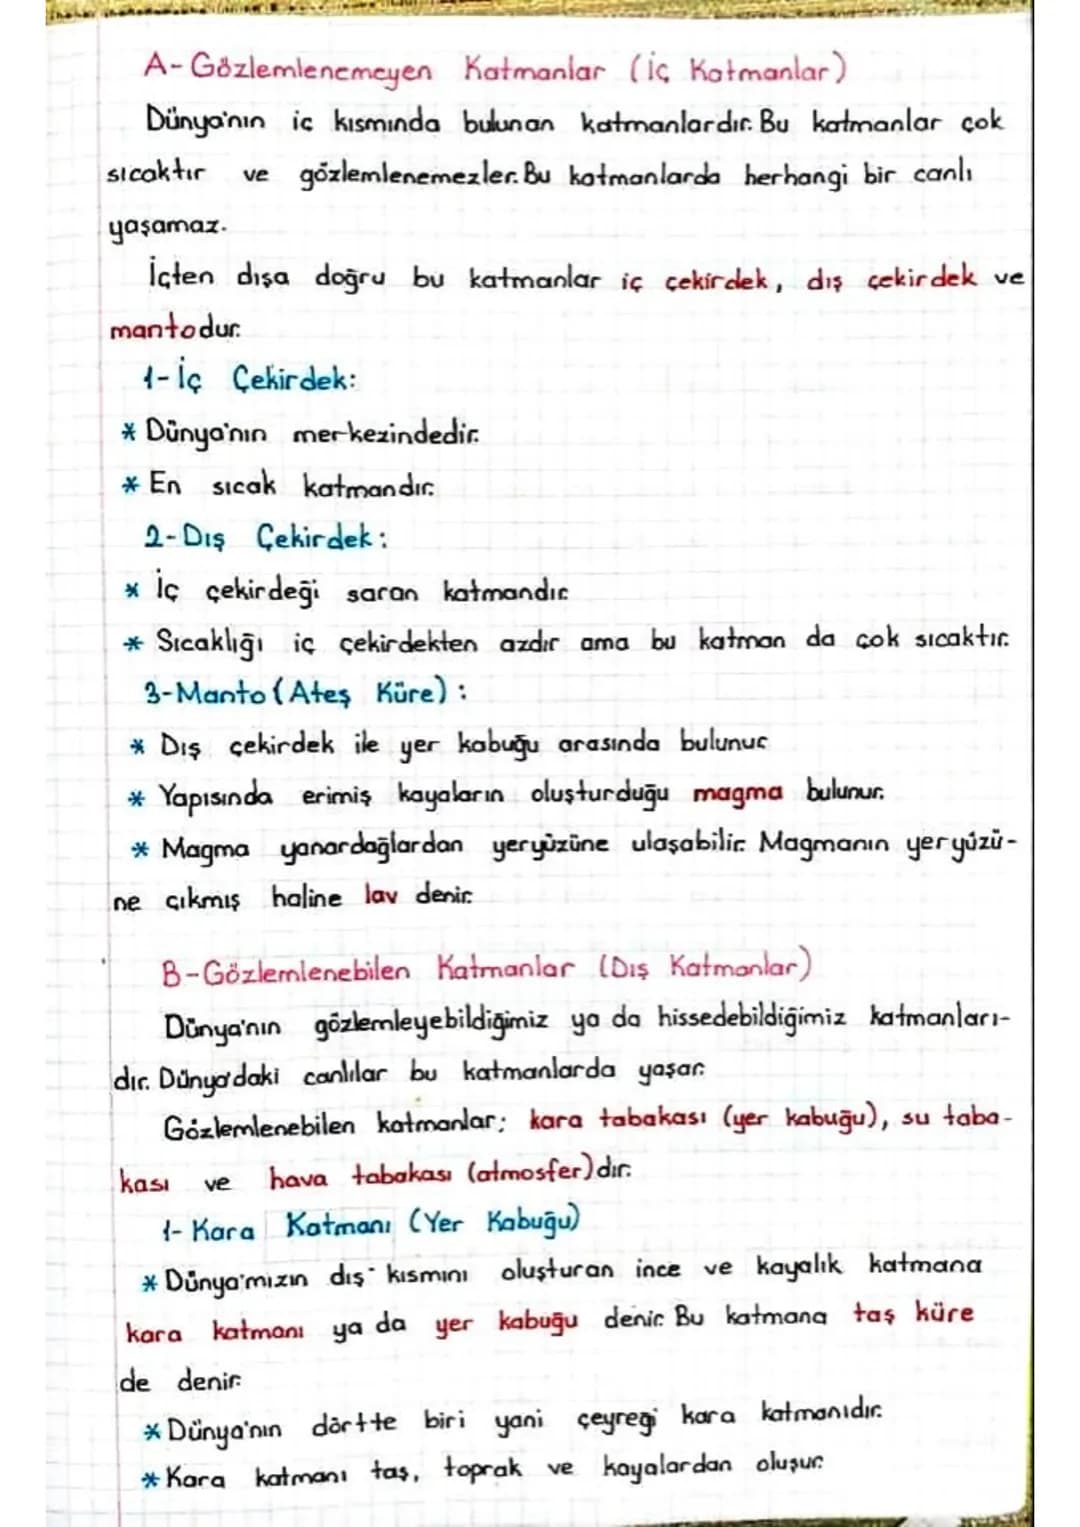 A- Gözlemlenemeyen Katmanlar (İç Katmanlar)
Dünya'nın iç kısmında bulunan katmanlardır. Bu katmanlar çok
sıcaktır ve gözlemlenemezler. Bu katmanlarda herhangi bir canlı
yaşamaz.
İçten dışa doğru bu katmanlar iç çekirdek, dış çekirdek ve
mantodur.
1- İç Çekirdek:
* Dünya'nın merkezindedir.
* En sıcak katmandır.
2- Dış Çekirdek:
* İç çekirdeği saran katmandır.
* Sıcaklığı iç çekirdekten azdır ama bu katman da çok sıcaktır.
3-Manto (Ateş Küre) :
* Dış çekirdek ile yer kabuğu arasında bulunur.
* Yapısında erimiş kayaların oluşturduğu magma bulunur.
* Magma yanardağlardan yeryüzüne ulaşabilir. Magmanın yeryüzü-
ne çıkmış haline lav denir.
B-Gözlemlenebilen Katmanlar (Dış Katmanlar)
Dünya'nın gözlemleyebildiğimiz ya da hissedebildiğimiz katmanları-
dır. Dünya'daki canlılar bu katmanlarda yaşar.
Gözlemlenebilen katmanlar; kara tabakası (yer kabuğu), su taba-
kası ve hava tabakası (atmosfer)dır.
1- Kara Katmanı (Yer Kabuğu)
* Dünya'mızın dış kısmını oluşturan ince ve kayalık katmana
kara katmanı ya da yer kabuğu denir. Bu katmana taş küre
de denir.
* Dünya'nın dörtte biri yani çeyreği kara katmanıdır.
* Kara katmanı taş, toprak ve kayalardan oluşur.